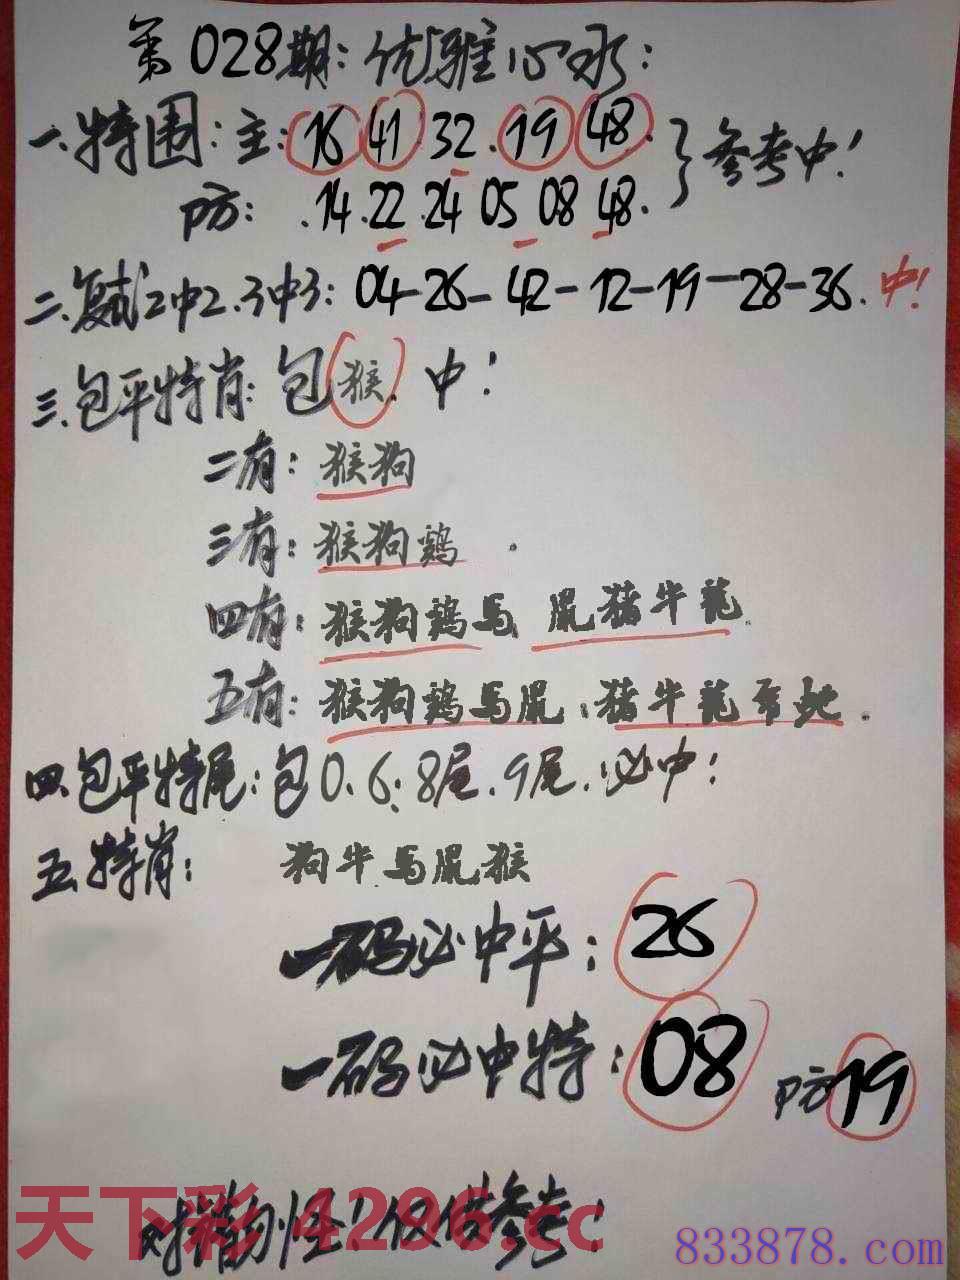 第028期：优雅心水：
一.特围：主：16 41 32.19 48. 参考中！
防：.14.22.24 05 08 48.
二.复试2中2.3中3：04-26-42-12-19-28-36.中！
三.包平特肖：包猴.中！
二有：猴狗
三有：猴狗鷄.
四有：猴狗鷄马 鼠猪牛龍
五有：猴狗鷄马鼠；猪牛龍 蛇.
四.包平特尾：包0.6：8尾.9尾.必中：
五.特肖：狗牛马鼠猴
一码必中平：26
一码必中特：08 防19
仅供参考！
天下彩 4296.cc
833878.com